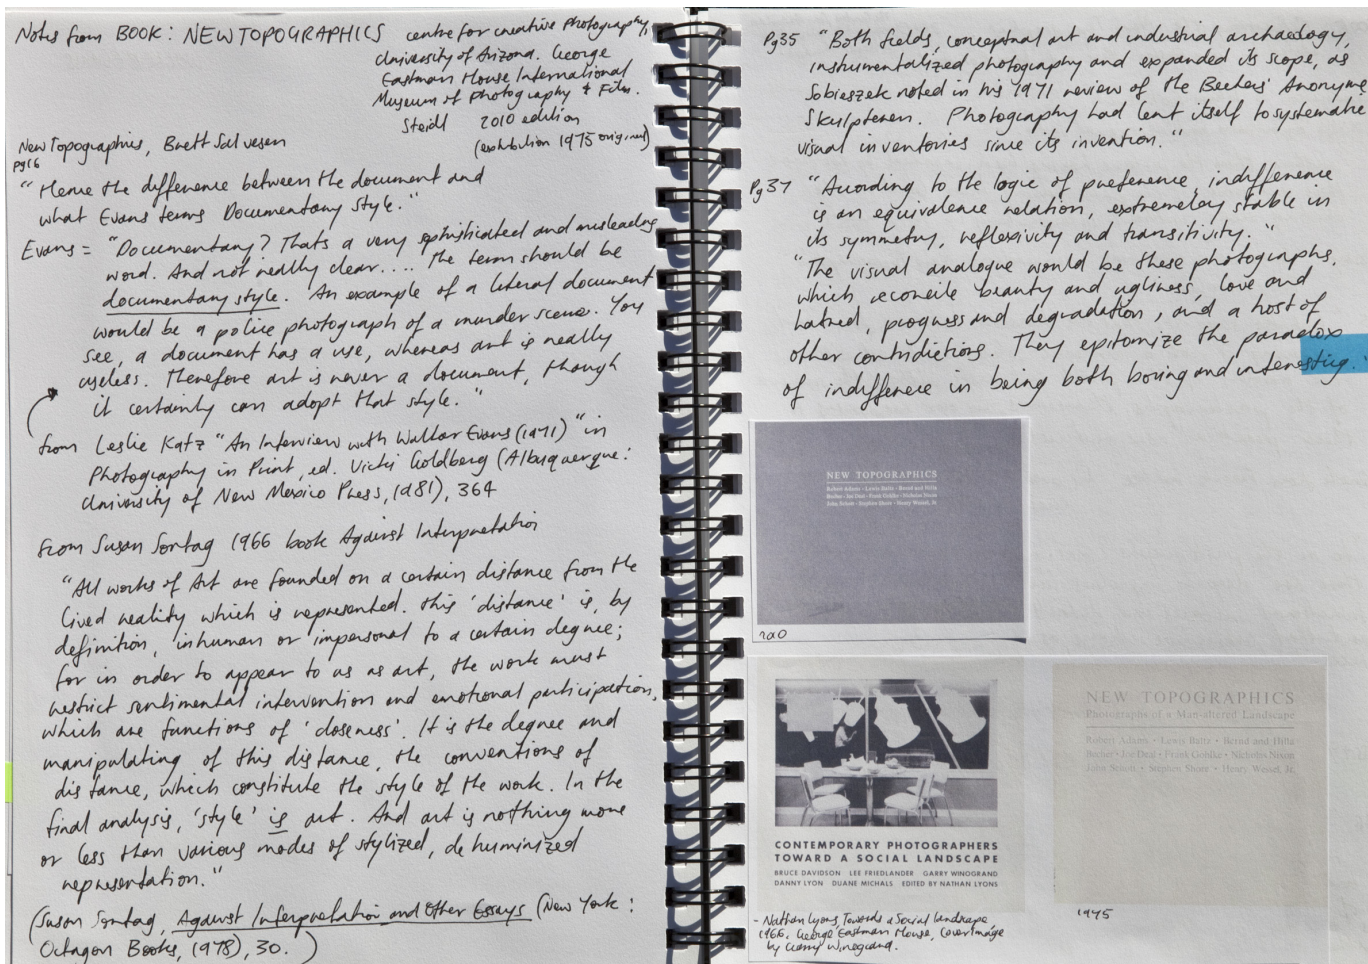 Notes from BOOK: NEW TOPOGRAPHICS centre for creative Photography,
University of Arizona. George
Eastman House International
Museum of Photography & Film.
Steidl 2010 edition
(exhibition 1975 original)
New Topographics, Brett Salvesen
pg16
"Hence the difference between the document and
what Evans terms Documentary style."
Evans = "Documentary? Thats a very sophisticated and misleading
word. And not really clear.... The term should be
documentary style. An example of a literal document
would be a police photograph of a murder scene. You
see, a document has a use, whereas art is really
useless. Therefore art is never a document, though
it certainly can adopt that style."
from Leslie Katz "An Interview with Walker Evans (1971)" in
Photography in Print, ed. Vicki Goldberg (Albuquerque:
University of New Mexico Press, 1981), 364
from Susan Sontag 1966 book Against Interpretation
"All works of Art are founded on a certain distance from the
lived reality which is represented. This 'distance' is, by
definition, inhuman or impersonal to a certain degree;
for in order to appear to us as art, the work must
restrict sentimental intervention and emotional participation,
which are functions of 'closeness'. It is the degree and
manipulating of this distance, the conventions of
distance, which constitute the style of the work. In the
final analysis, 'style' is art. And art is nothing more
or less than various modes of stylized, dehuminized
representation."
(Susan Sontag, Against Interpretation and Other Essays (New York:
Octagon Books, (1978), 30. )
Pg35 "Both fields, conceptual art and industrial archaeology,
instrumentalized photography and expanded its scope, as
Sobieszek noted in his 1971 review of the Bechers' Anonyme
Skulpteren. Photography had lent itself to systematic
visual inventories since its invention."
Pg37 "Acording to the logic of preference, indifference
is an equivalence relation, extremeloy stable in
its symmetry, reflexivity and transitivity."
"The visual analogue would be these photographs,
which reconcile beauty and ugliness, love and
hatred, progress and degradation, and a host of
other contridictions. They epitomize the paradox
of indifference in being both boring and interesting."
NEW TOPOGRAPHICS
Robert Adams • Lewis Baltz • Bernd and Hilla
Becher • Joe Deal • Frank Gohlke • Nicholas Nixon
John Schott • Stephen Shore • Henry Wessel, Jr.
CONTEMPORARY PHOTOGRAPHERS
TOWARD A SOCIAL LANDSCAPE
BRUCE DAVIDSON LEE FRIEDLANDER GARRY WINOGRAND
DANNY LYON DUANE MICHALS EDITED BY NATHAN LYONS
- Nathan Lyons, Towards a Social Landscape
1966, George Eastman House, Cover image
by Garry Winogrand.
NEW TOPOGRAPHICS
Photographs of a Man-altered Landscape
Robert Adams • Lewis Baltz • Bernd and Hilla
Becher • Joe Deal • Frank Gohlke • Nicholas Nixon
John Schott • Stephen Shore • Henry Wessel, Jr.
1975